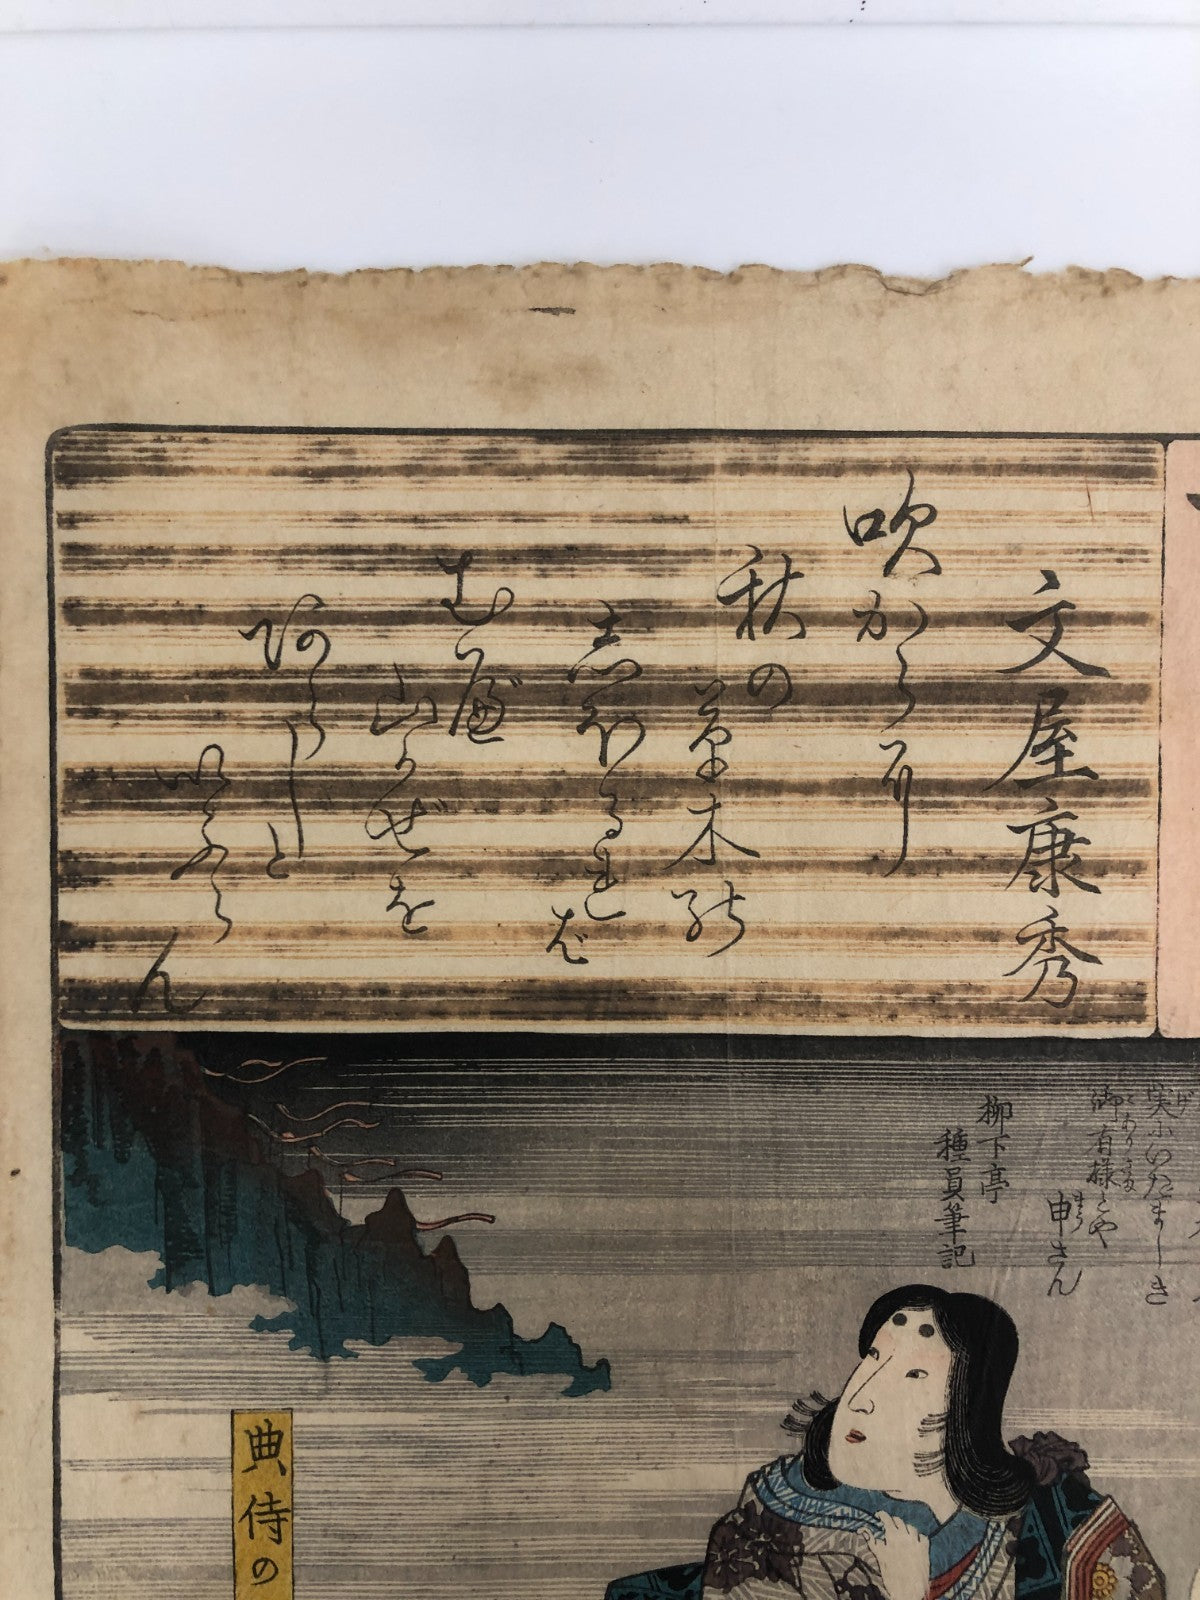 文屋康秀
吹からに
秋の
草木の
しほるれば
むべ
山かぜを
あらしと
いふらん
実にいたましき
御有様とや
申さん
柳下亭
種員筆記
典侍の